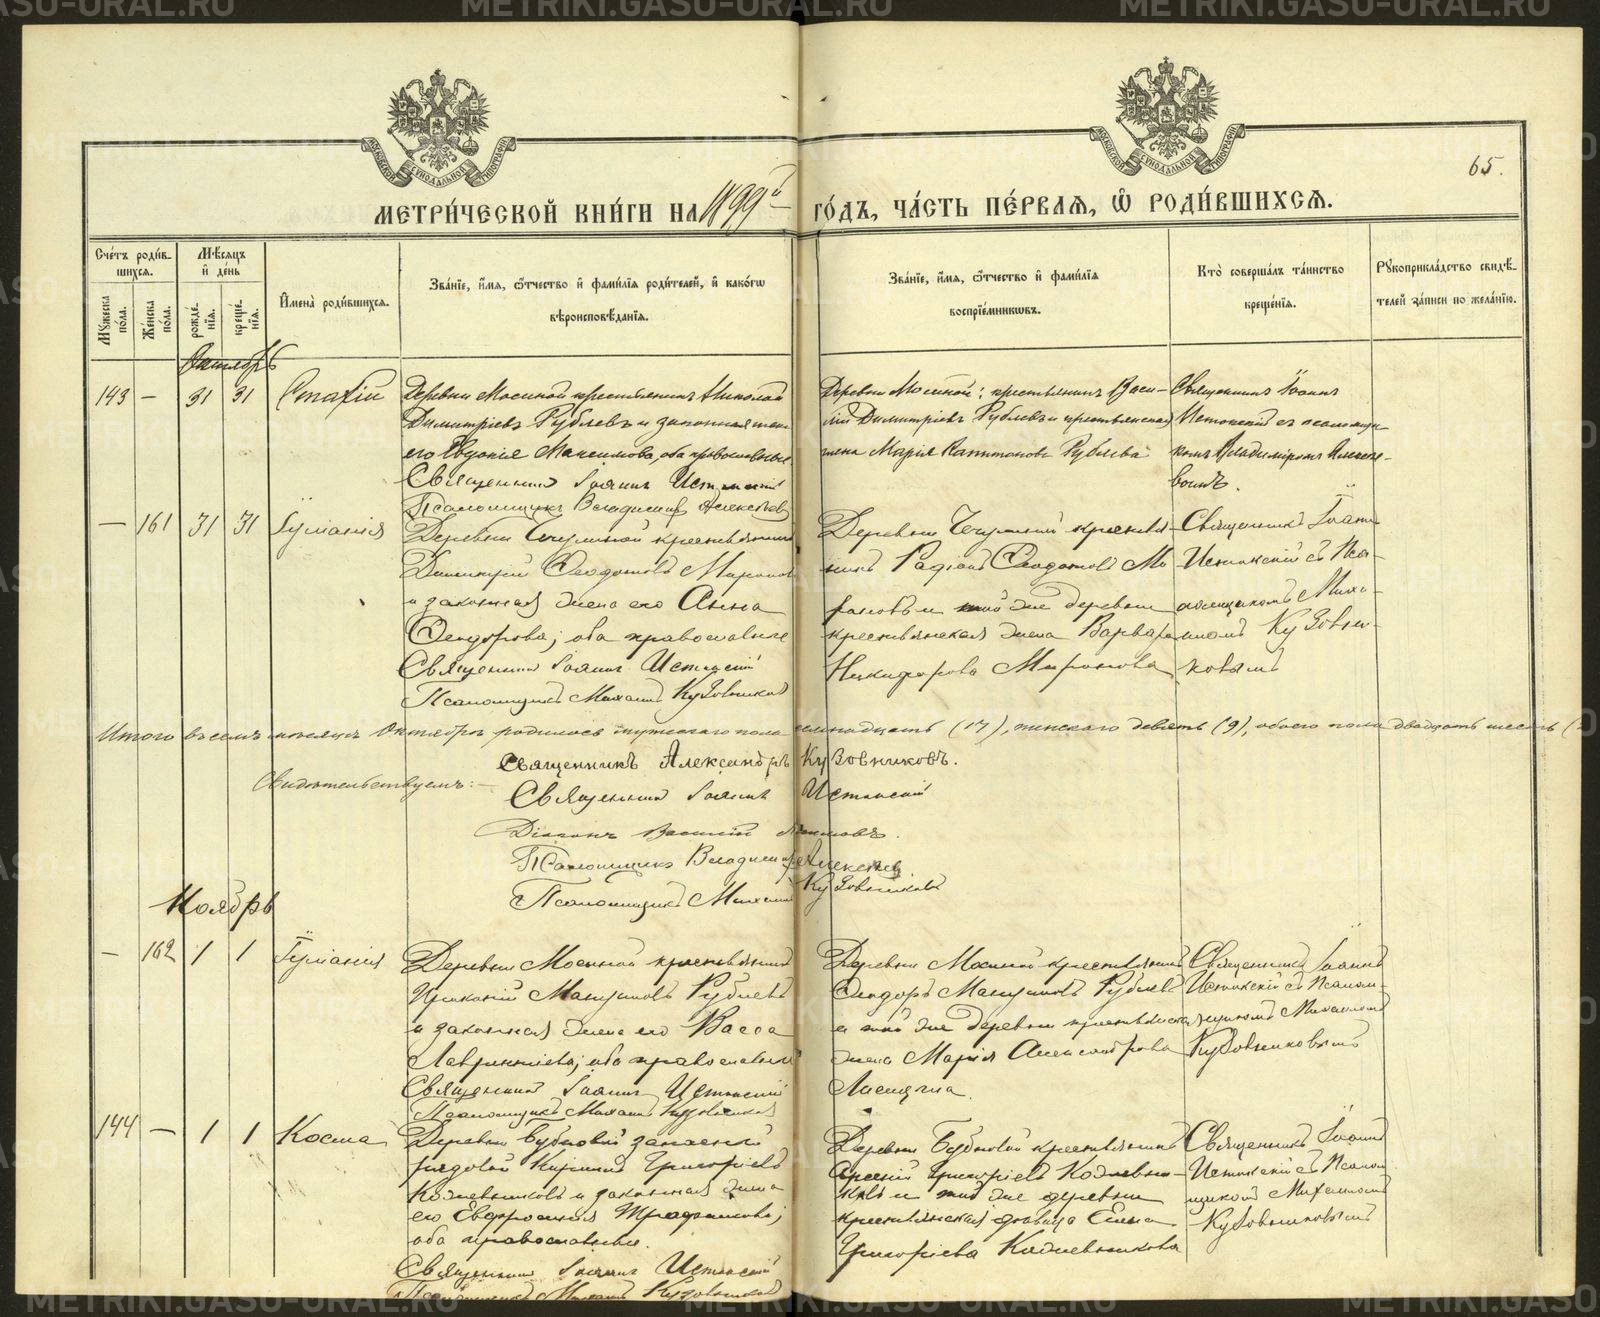 METRIKI.GASU-URAL.RU
МОСКОВСКОЙ СѴНОДАЛЬНОЙ ТИПОГРАФІИ
МОСКОВСКОЙ СѴНОДАЛЬНОЙ ТИПОГРАФІИ
65.
МЕТРИ́ЧЕСКОЙ КНИ́ГИ НА 1899й ГО́ДЪ, ЧА́СТЬ ПЕ́РВАѦ, Ѽ РОДИ́ВШИХСѦ.
Сче́тъ роди́в-
шихсѧ.
Мꙋжеска по́ла.
Же́нска по́ла.
Мѣ́сѧцъ и҆ де́нь
рожде́нїѧ.
креще́нїѧ.
И҆мена̀ роди́вшихсѧ.
Зва́нїе, и҆́мѧ, ѻ҆́тчество и҆ фами́лїѧ роди́телей, и҆ како́гѡ
вѣроисповѣ́данїѧ.
Зва́нїе, и҆́мѧ, ѻ҆́тчество и҆ фами́лїѧ
воспрїе́мникѡвъ.
Кто̀ соверша́лъ та́инство
креще́нїѧ.
Рꙋкоприкла́дство свидѣ́-
телей за́писи по жела́нїю.
Октябрь
143 — 31 31 Стахій
Деревни Мосиной крестьянинъ Николай
Димитріевъ Рублевъ и законная жена
его Евдокія Максимова, оба православные.
Священникъ Іоаннъ Истокскій
Псаломщикъ Владимиръ Алексѣевъ
Деревни Мосиной: крестьянинъ Васи-
лій Димитріевъ Рублевъ и крестьянская
жена Марія Капитонова Рублева
Священникъ Іоаннъ
Истокскій съ псаломщи-
комъ Владимиромъ Алексѣе-
вымъ.
— 161 31 31 Іуліанія
Деревни крестьянинъ
Димитрій Ѳеодотовъ Мироновъ
и законная жена его Анна
Ѳеодорова; оба православные
Священникъ Іоаннъ Истокскій
Псаломщикъ Михаилъ Кузовниковъ
Деревни крестья-
нинъ Ѳеодотовъ Ми-
роновъ и той же деревни
крестьянская жена Варвара
Никифорова Миронова
Священникъ Іоаннъ
Истокскій съ Пса-
ломщикомъ Миха-
иломъ Кузовни-
ковымъ
Итого въ семъ мѣсяцѣ Октябрѣ родилось мужескаго пола семнадцать (17), женскаго девять (9), обоего пола двадцать шесть (2
Священникъ Александръ Кузовниковъ.
Свидѣтельствуемъ: —
Священникъ Іоаннъ Истокскій
Діаконъ Василій
Псаломщикъ Владимиръ Алексѣевъ
Псаломщикъ Михаилъ Кузовниковъ
Ноябрь
— 162 1 1 Іуліанія
Деревни Мосиной крестьянинъ
Мануиловъ Рублевъ
и законная жена его Васса
Лаврентіева; оба православные
Священникъ Іоаннъ Истокскій
Псаломщикъ Михаилъ Кузовниковъ
Деревни Мосиной крестьянинъ
Ѳеодоръ Мануиловъ Рублевъ
и той же деревни крестьянская
жена Марія Александрова
Священникъ Іоаннъ
Истокскій съ Псалом-
щикомъ Михаиломъ
Кузовниковымъ
144 — 1 1 Косма
Деревни Бубновой запасный
рядовой Григоріевъ
Кожевниковъ и законная жена
его Евфросинія Трофимова;
оба православные.
Священникъ Іоаннъ Истокскій
Псаломщикъ Михаилъ Кузовниковъ
Деревни Бубновой крестьянинъ
Арсеній Григоріевъ Кожевни-
ковъ и той же деревни
крестьянская дѣвица Елена
Григоріева Кожевникова
Священникъ Іоаннъ
Истокскій съ Псалом-
щикомъ Михаиломъ
Кузовниковымъ